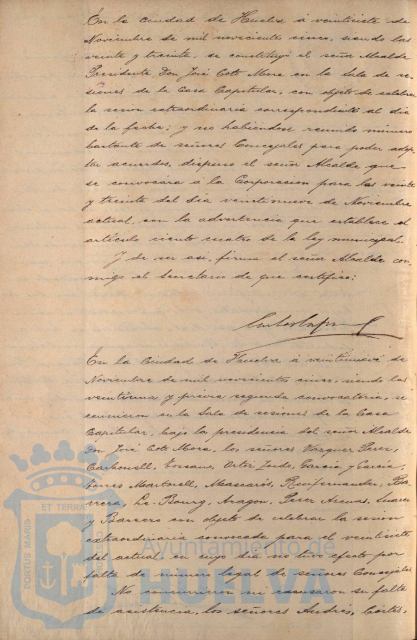 En la Ciudad de Huelva á veintisiete de
Noviembre de mil novecientos cinco, siendo las
veinte y treinta, se constituyó el señor Alcalde
Presidente Don José Coto Mora en la Sala de se-
siones de la Casa Capitular, con objeto de celebrar
la sesion extraordinaria correspondiente al dia
de la fecha; y no habiendose reunido número
bastante de señores Concejales para poder adop-
tar acuerdos, dispuso el señor Alcalde que
se convocára á la Corporacion para las veinte
y treinta del dia veintinueve de Noviembre
actual, con la advertencia que establece el
artículo ciento cuatro de la ley municipal.
Y de ser asi, firma el señor Alcalde con-
migo el Secretario de que certifico:
En la Ciudad de Huelva á veintinueve de
Noviembre de mil novecientos cinco, siendo las
veintiuna y previa segunda convocatoria, se
reunieron en la Sala de sesiones de la Casa
Capitular, bajo la presidencia del señor Alcalde
Don José Coto Mora, los señores Vazquez Perez,
Garcia y Garcia,
Martorell,
Aragon, Perez
y Barrero con objeto de celebrar la sesion
extraordinaria convocada para el veintisiete
del actual, en cuyo dia no tuvo efecto por
falta de número legal de señores Concejales.
No concurrieron ni escusaron su falta
de asistencia, los señores Cortés,
PORTUS MARIS ET TERRAE CUSTODIA
Ayuntamiento de
HUELVA